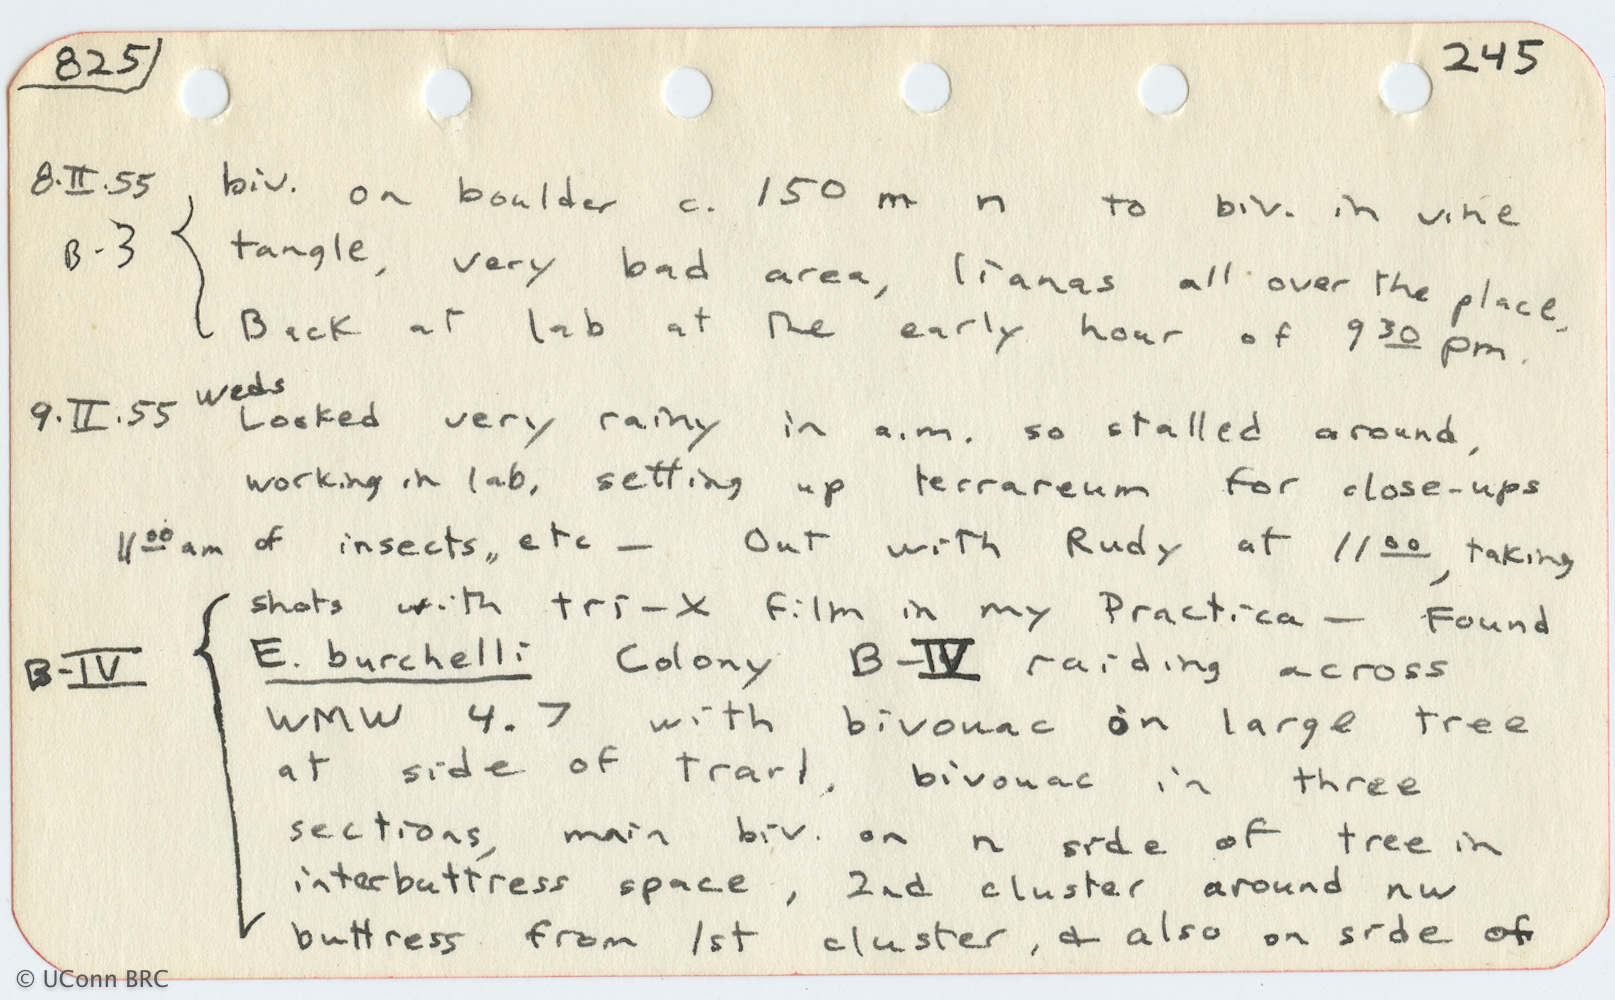 825 245
8.II.55 biv. on boulder c. 150 m n to biv. in vine
B-3 tangle, very bad area, lianas all over the place.
Back at lab at the early hour of 9 30 pm.
9.II.55 weds Looked very rainy in a.m. so stalled around,
working in lab, setting up terrareum for close-ups
11 00 am of insects, etc — Out with Rudy at 11 00, taking
shots with tri-X film in my Practica — Found
B-IV E. burchelli Colony B-IV raiding across
WMW 4.7 with bivouac on large tree
at side of trail, bivouac in three
sections, main biv. on n side of tree in
interbuttress space, 2nd cluster around nw
buttress from 1st cluster, & also on side of
© UConn BRC